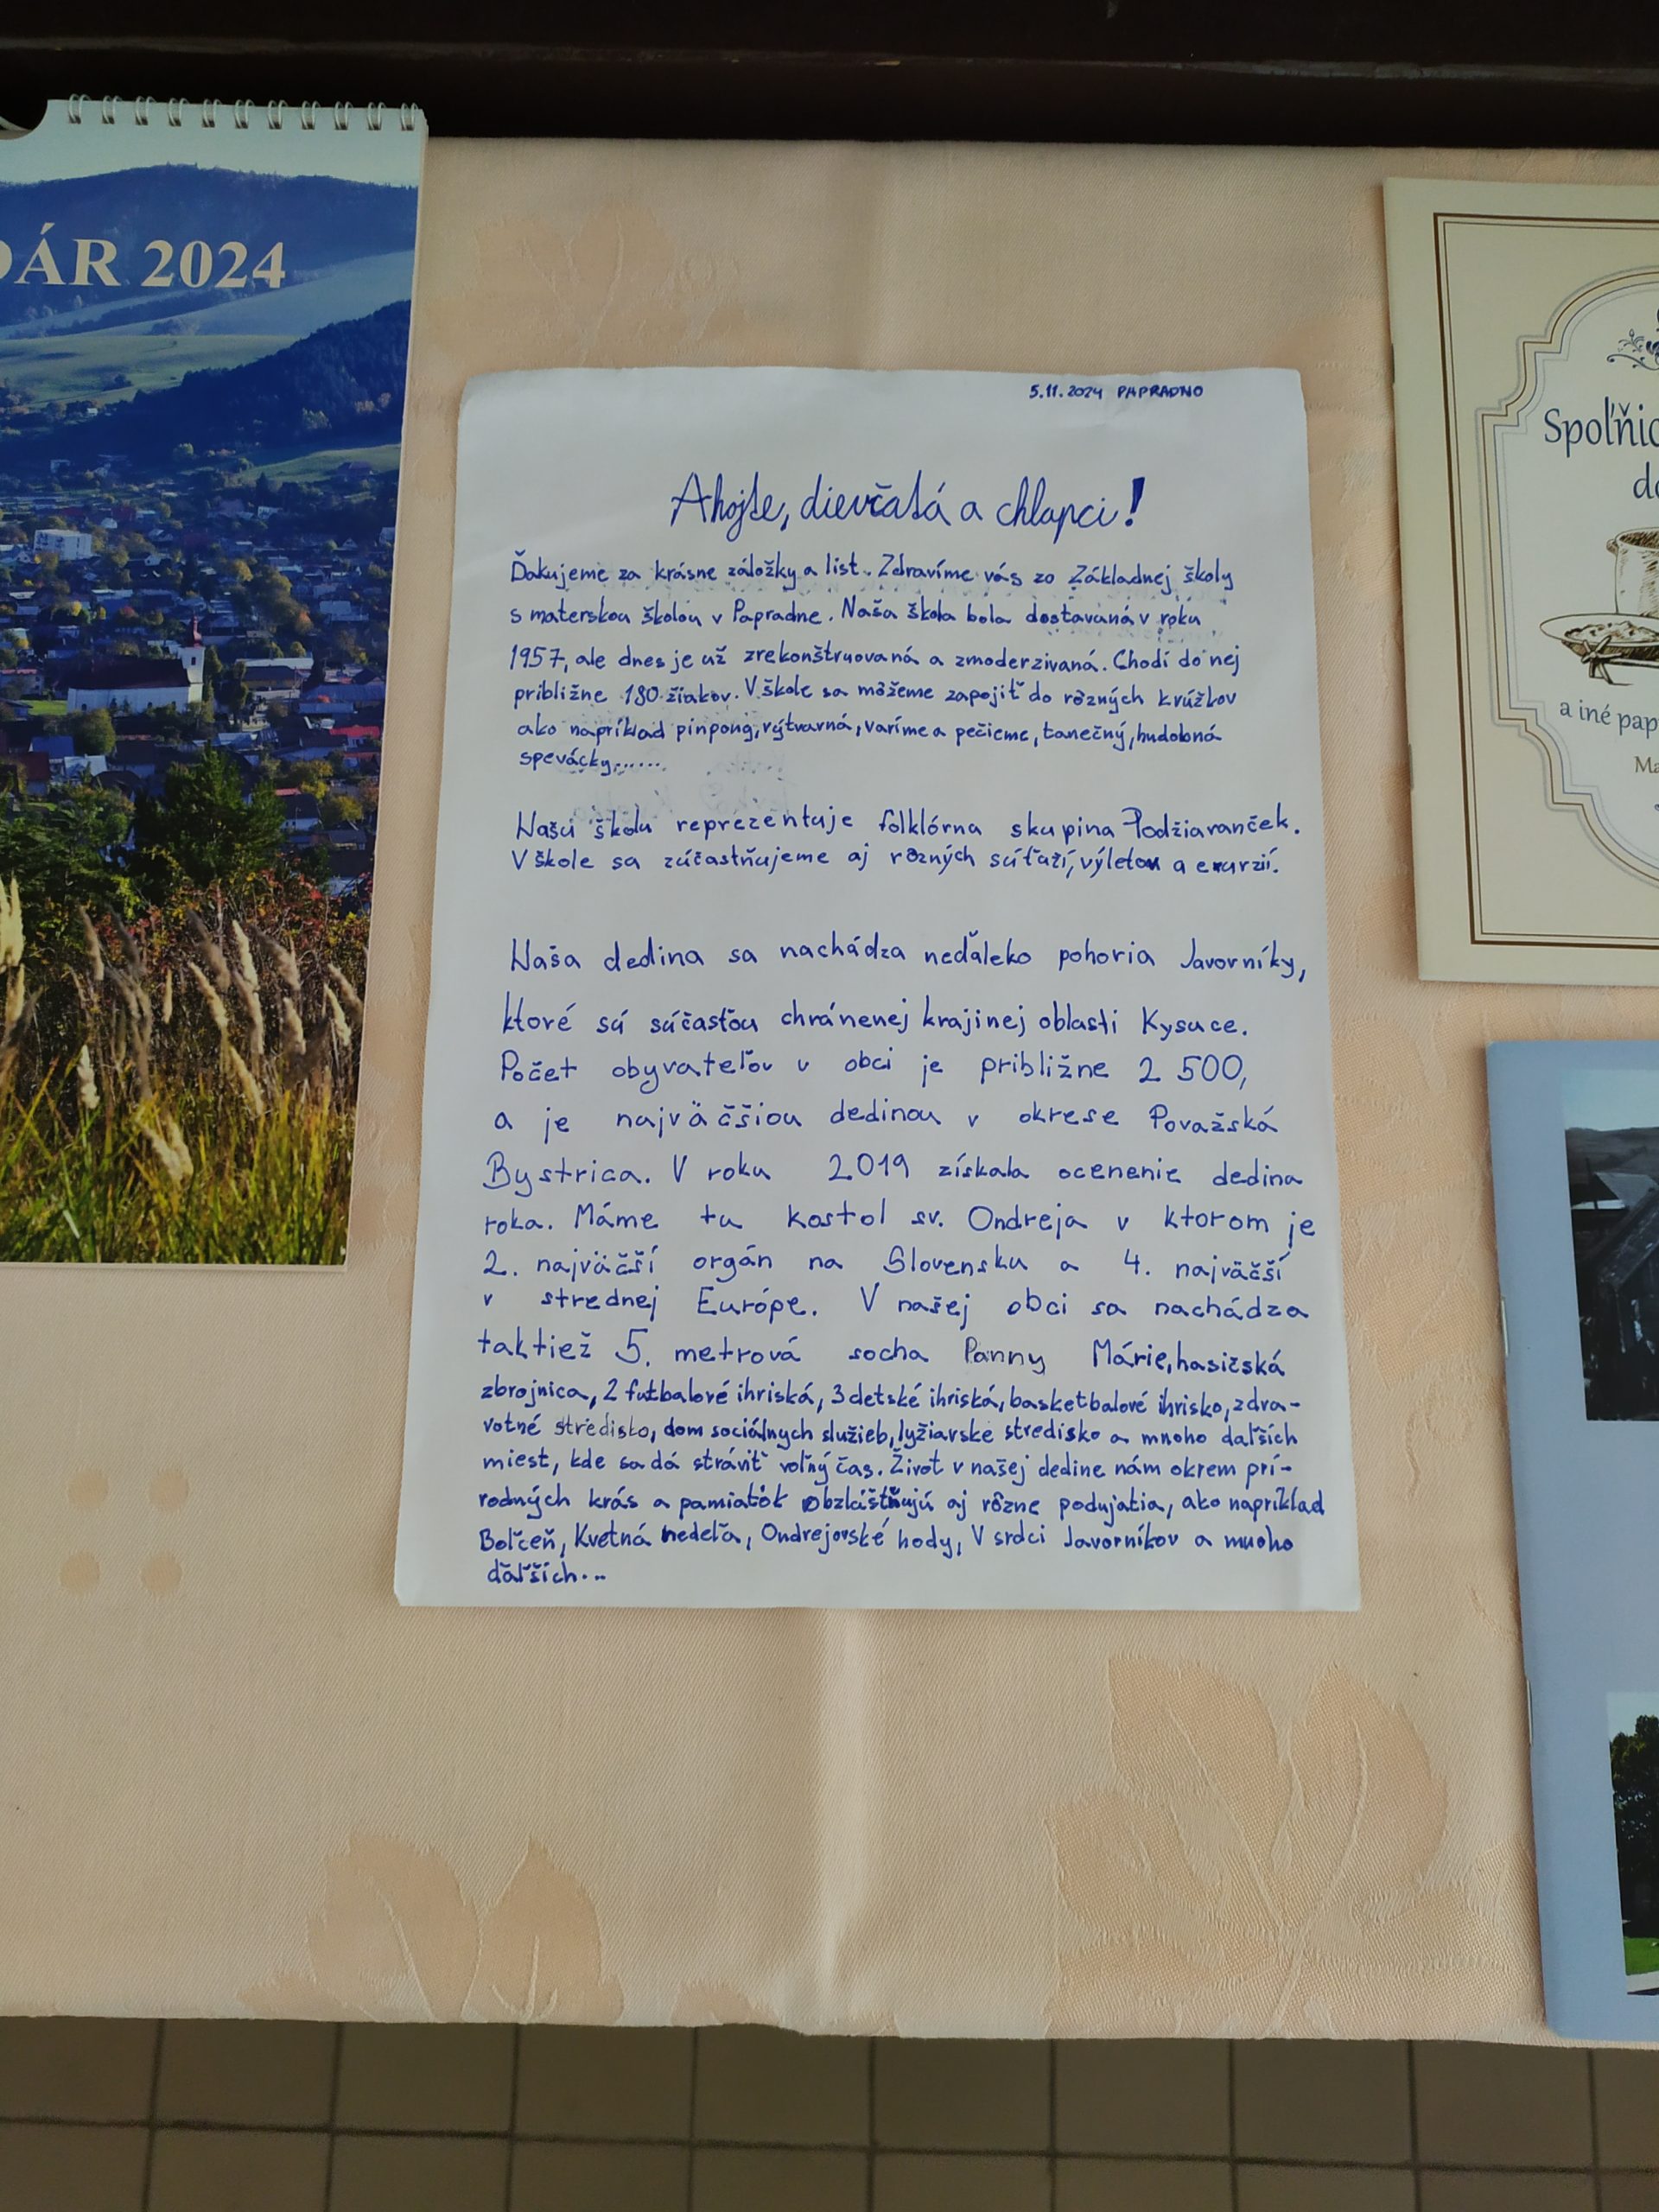 DÁR 2024
5.11.2024 PAPRADNO
Ahojte, dievčatá a chlapci!
Ďakujeme za krásne záložky a list. Zdravíme vás zo Základnej školy
s materskou školou v Papradne. Naša škola bola dostavaná v roku
1957, ale dnes je už zrekonštruovaná a zmoderzivaná. Chodí do nej
približne 180 žiakov. V škole sa môžeme zapojiť do rôzných krúžkov
ako napríklad pinpong, výtvarná, varíme a pečieme, tanečný, hudobná
spevácky,.....
Našu školu reprezentuje folklórna skupina Podžiaranček.
V škole sa zúčastňujeme aj rôzných súťaží, výletov a exurzií.
Naša dedina sa nachádza neďaleko pohoria Javorníky,
ktoré sú súčasťou chránenej krajinej oblasti Kysuce.
Počet obyvateľov v obci je približne 2 500,
a je najväčšiou dedinou v okrese Považská
Bystrica. V roku 2019 získala ocenenie dedina
roka. Máme tu kostol sv. Ondreja v ktorom je
2. najväčší orgán na Slovensku a 4. najväčší
v strednej Európe. V našej obci sa nachádza
taktiež 5. metrová socha Panny Márie, hasičská
zbrojnica, 2 futbalové ihriská, 3 detské ihriská, basketbalové ihrisko, zdra-
votné stredisko, dom sociálnych služieb, lyžiarske stredisko a mnoho ďaľších
miest, kde sa dá stráviť voľný čas. Život v našej dedine nám okrem prí-
rodných krás a pamiatok obzláštňujú aj rôzne podujatia, ako napríklad
Boľceň, Kvetná nedeľa, Ondrejovské hody, V srdci Javorníkov a mnoho
ďaľších...
Spoľňic
do
a iné pap
Ma